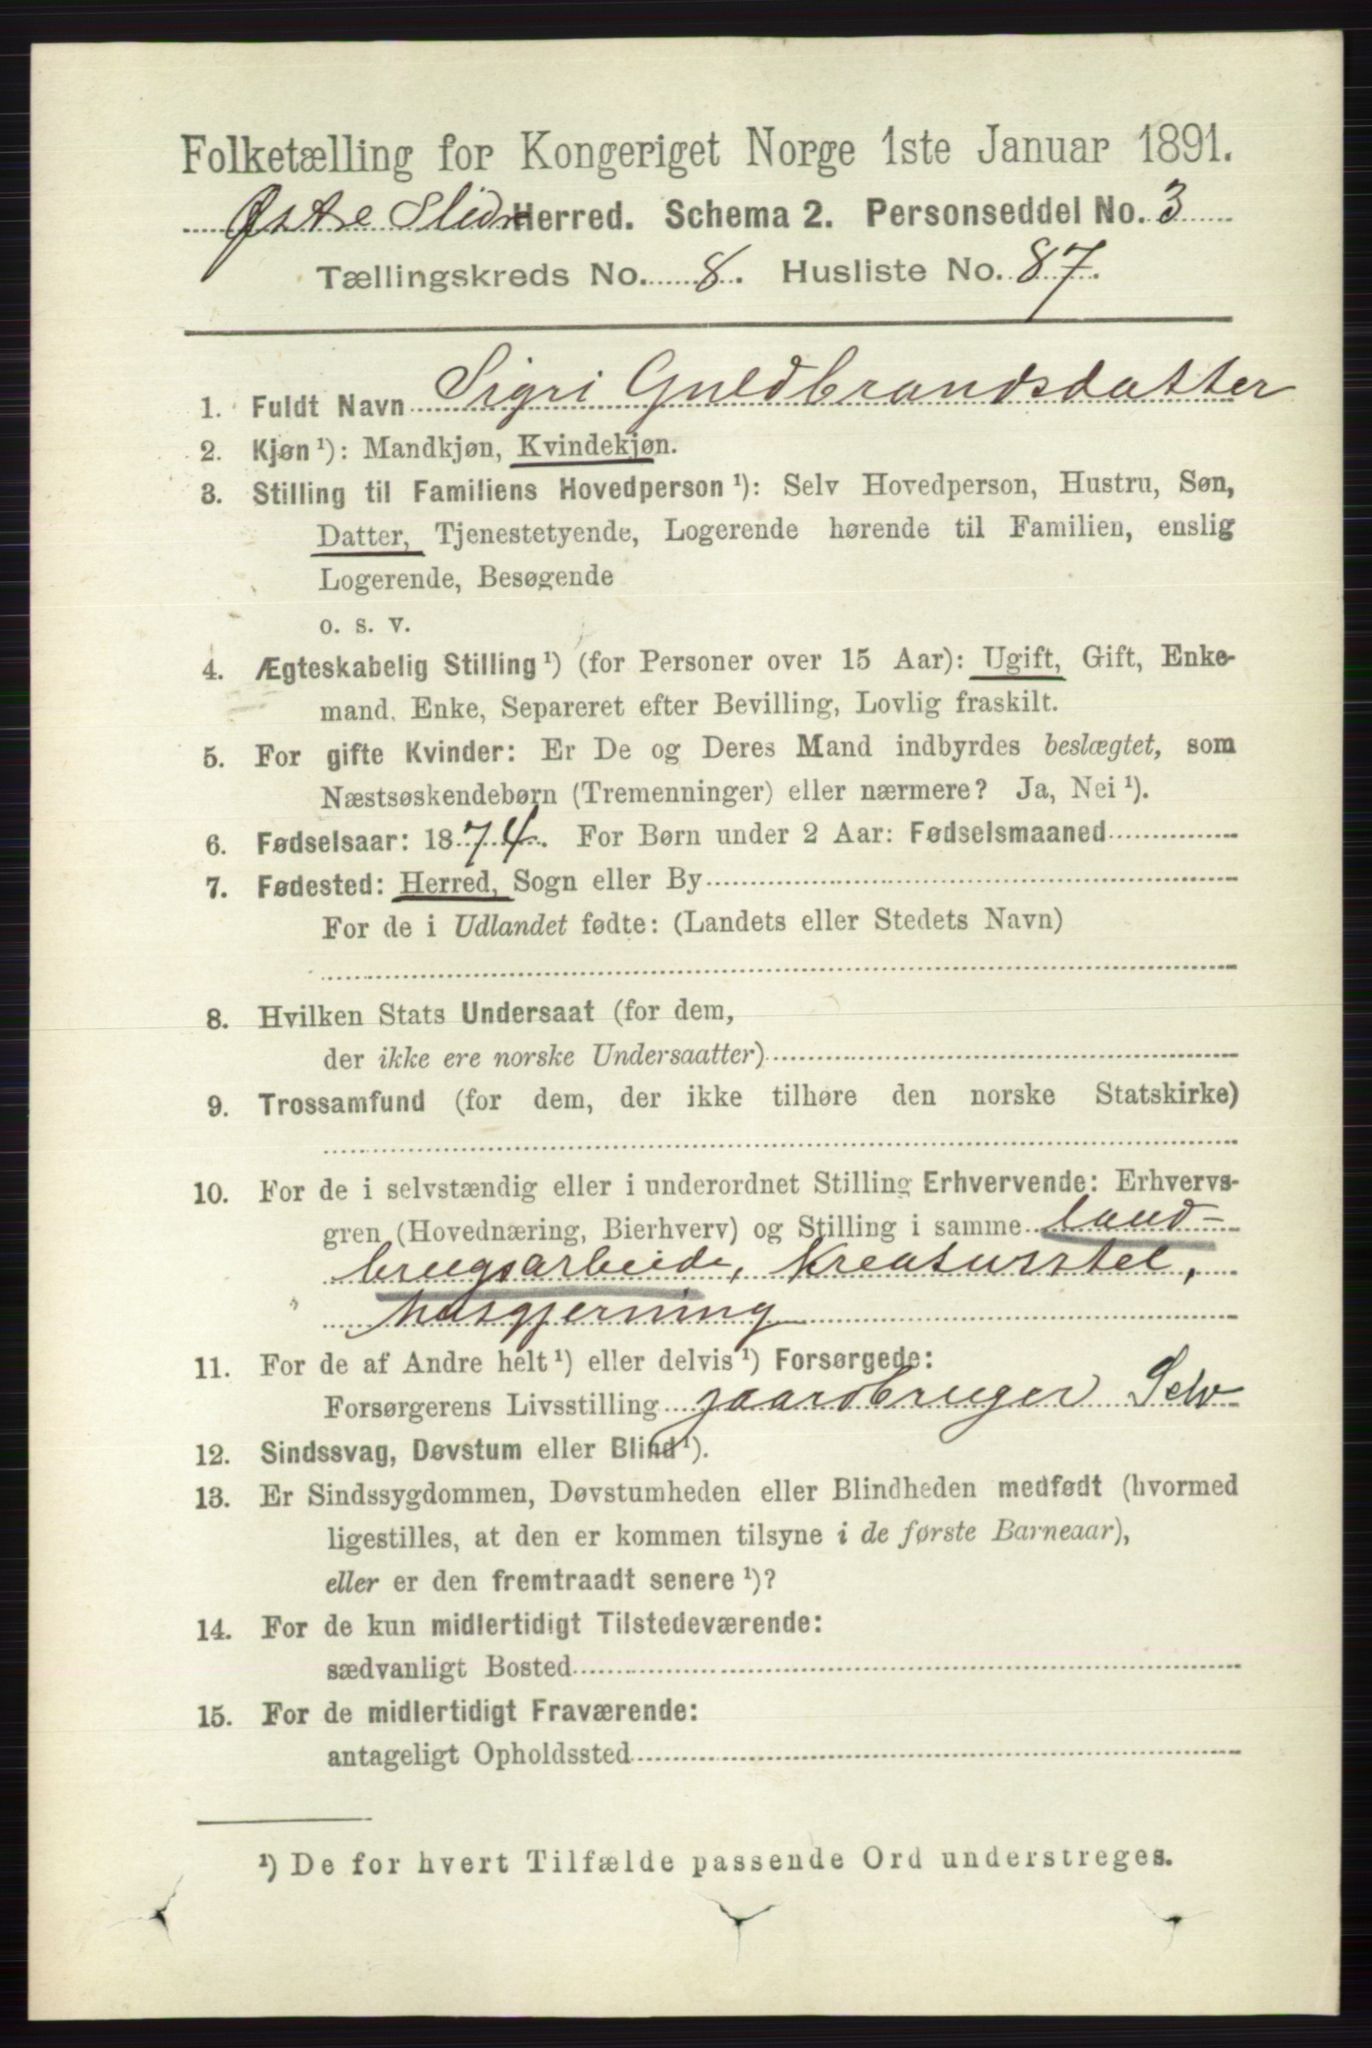 Folketælling for Kongeriget Norge 1ste Januar 1891.
Østre Slidre Herred. Schema 2. Personseddel No. 3
Tællingskreds No. 8. Husliste No. 87.
1. Fuldt Navn Sigri Guldbrandsdatter
2. Kjøn ¹): Mandkjøn, Kvindekjøn.
3. Stilling til Familiens Hovedperson ¹): Selv Hovedperson, Hustru, Søn,
Datter, Tjenestetyende, Logerende hørende til Familien, enslig
Logerende, Besøgende
o. s. v.
4. Ægteskabelig Stilling ¹) (for Personer over 15 Aar): Ugift, Gift, Enke-
mand, Enke, Separeret efter Bevilling, Lovlig fraskilt.
5. For gifte Kvinder: Er De og Deres Mand indbyrdes beslægtet, som
Næstsøskendebørn (Tremenninger) eller nærmere? Ja, Nei ¹).
6. Fødselsaar: 1874. For Børn under 2 Aar: Fødselsmaaned
7. Fødested: Herred, Sogn eller By
For de i Udlandet fødte: (Landets eller Stedets Navn)
8. Hvilken Stats Undersaat (for dem,
der ikke ere norske Undersaatter)
9. Trossamfund (for dem, der ikke tilhøre den norske Statskirke)
10. For de i selvstændig eller i underordnet Stilling Erhvervende: Erhvervs-
gren (Hovednæring, Bierhverv) og Stilling i samme Land-
brugsarbeide, Kreatursstel,
Husgjerning
11. For de af Andre helt ¹) eller delvis ¹) Forsørgede:
Forsørgerens Livsstilling gaardbruger Selv
12. Sindssvag, Døvstum eller Blind ¹).
13. Er Sindssygdommen, Døvstumheden eller Blindheden medfødt (hvormed
ligestilles, at den er kommen tilsyne i de første Barneaar),
eller er den fremtraadt senere ¹)?
14. For de kun midlertidigt Tilstedeværende:
sædvanligt Bosted
15. For de midlertidigt Fraværende:
antageligt Opholdssted
¹) De for hvert Tilfælde passende Ord understreges.